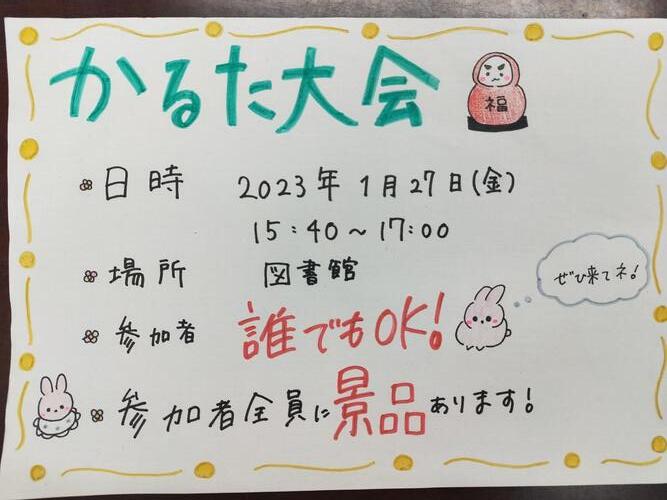 かるた大会
福
日時 2023年1月27日(金)
15:40～17:00
場所 図書館
ぜひ来てネ!
参加者 誰でもOK!
参加者全員に景品あります!